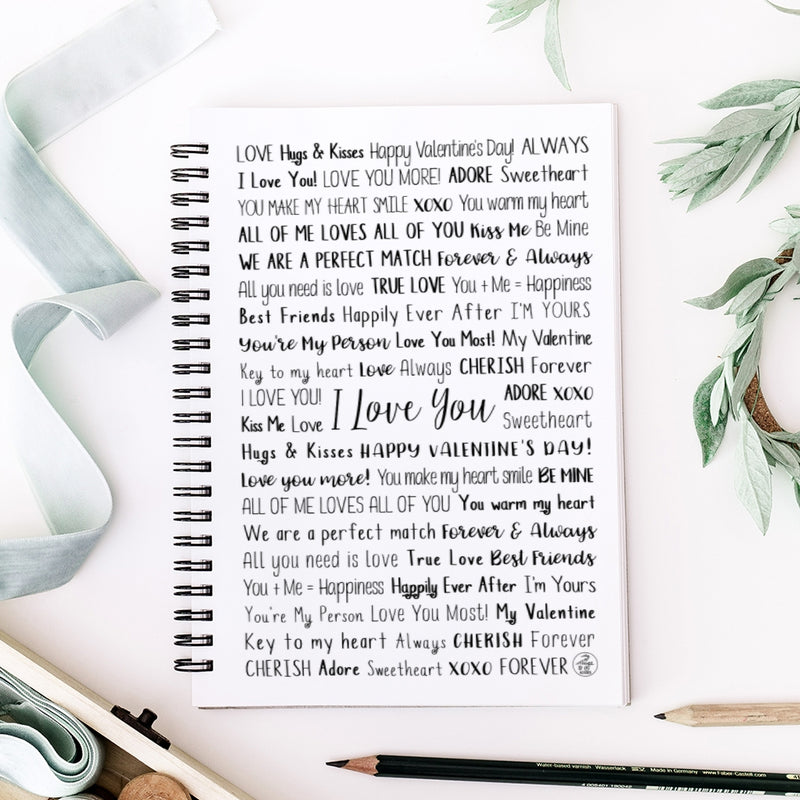 LOVE Hugs & Kisses Happy Valentine's Day! ALWAYS
I Love You! LOVE YOU MORE! ADORE Sweetheart
YOU MAKE MY HEART SMILE XOXO You warm my heart
ALL OF ME LOVES ALL OF YOU Kiss Me Be Mine
WE ARE A PERFECT MATCH Forever & Always
All you need is love TRUE LOVE You + Me = Happiness
Best Friends Happily Ever After I'M YOURS
You're My Person Love You Most! My Valentine
Key to my heart Love Always CHERISH Forever
I LOVE YOU! ADORE XOXO
Kiss Me Love I Love You Sweetheart
Hugs & Kisses HAPPY VALENTINE'S DAY!
Love you more! You make my heart smile BE MINE
ALL OF ME LOVES ALL OF YOU You warm my heart
We are a perfect match Forever & Always
All you need is love True Love Best Friends
You + Me = Happiness Happily Ever After I'm Yours
You're My Person Love You Most! My Valentine
Key to my heart Always CHERISH Forever
CHERISH Adore Sweetheart XOXO FOREVER
Water-based varnish Wasserlack Made in Germany www.Faber-Castell.com